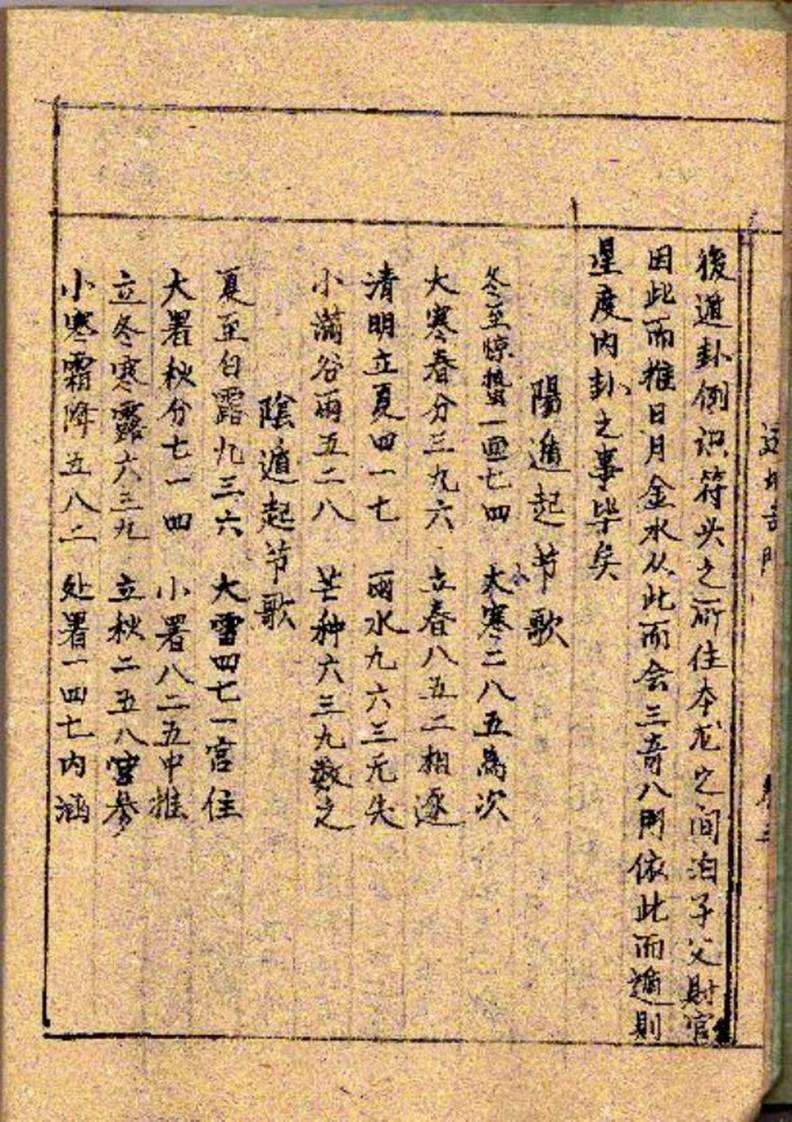 後遁卦例識符头之所住本龙之间泊子父財官
因此而推日月金水从此而会三奇八門依此而遁則
星度内卦之事毕矣
陽遁起节歌
冬至惊蛰一四七四 大寒二八五為次
大寒春分三九六 立春八五二相逐
清明立夏四一七 雨水九六三无失
小满谷雨五二八 芒种六三九数之
陰遁起节歌
夏至白露九三六 大雪四七一宫住
大署秋分七一四 小署八二五中推
立冬寒露六三九 立秋二五八宫参
小寒霜降五八二 处署一四七内涵
卷三